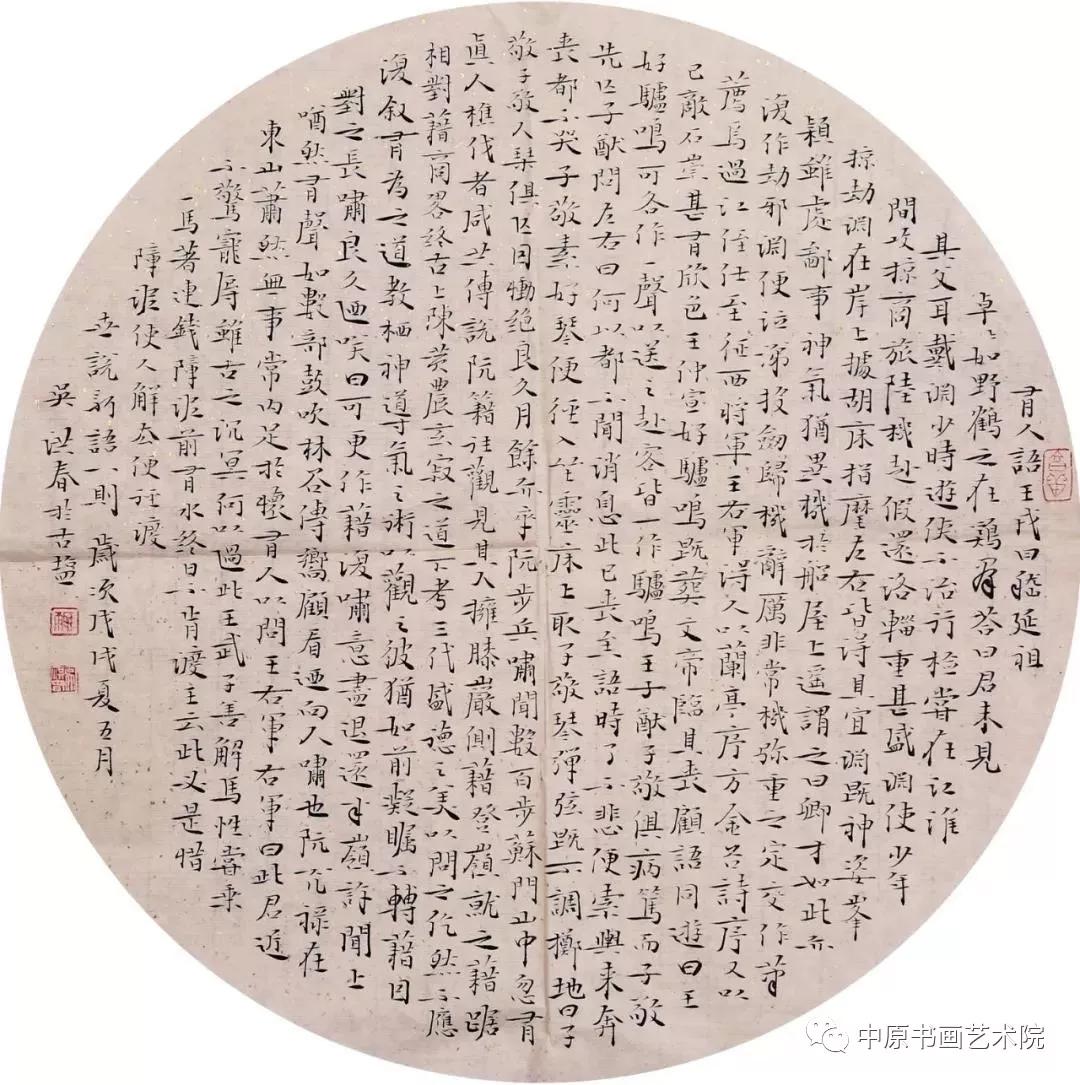 有人語王戎曰嵇延祖
卓々如野鶴之在鷄羣荅曰君未見
其父耳戴淵少時遊俠不治行檢嘗在江淮
間攻掠商旅陸機赴假還洛輜重甚盛淵使少年
掠劫淵在岸上據胡床指麾左右皆得其宜淵既神姿峯
穎雖處鄙事神氣猶異機於船屋上遥謂之曰卿才如此亦
復作劫邪淵便泣涕投劒歸機辭厲非常機弥重之定交作筆
薦焉過江仕至征西將軍王右軍得人以蘭亭序方金谷詩序又以
已敵石崇甚有欣色王仲宣好驢鳴既葬文帝臨其喪顧語同遊曰王
好驢鳴可各作一聲以送之赴客皆一作驢鳴王子猷子敬俱病篤而子敬
先亡子猷問左右曰何以都不聞消息此已喪矣語時了不悲便索輿来奔
喪都不哭子敬素好琴便徑入坐靈床上取子敬琴彈弦既不調擲地曰子
敬子敬人琴俱亡因慟绝良久月餘亦卒阮步兵嘯聞數百步蘇門山中忽有
真人樵伐者咸共傳說阮籍往觀見其人擁膝巖側籍登嶺就之藉踞
相對藉商畧终古上陳黄農玄寂之道下考三代盛德之美以問之仡然不應
復叙有為之道教栖神導氣之術以觀之彼猶如前凝矚不轉藉因
對之長嘯良久迺笑曰可更作藉復嘯意盡退還半嶺許聞上
㗜然有聲如數部鼓吹林谷傳響顧看迺向人嘯也阮光禄在
東山蕭然無事常内足於懷有人以問王右軍右軍曰此君近
不驚寵辱雖古之沉冥何以過此王武子善解馬性嘗乗
一馬著連錢障泥前有水终日不肯渡王云此必是惜
障泥使人解去便徑渡
世說新語八則 歲次戊戌夏五月
吳洪春於古盐
中原书画艺术院